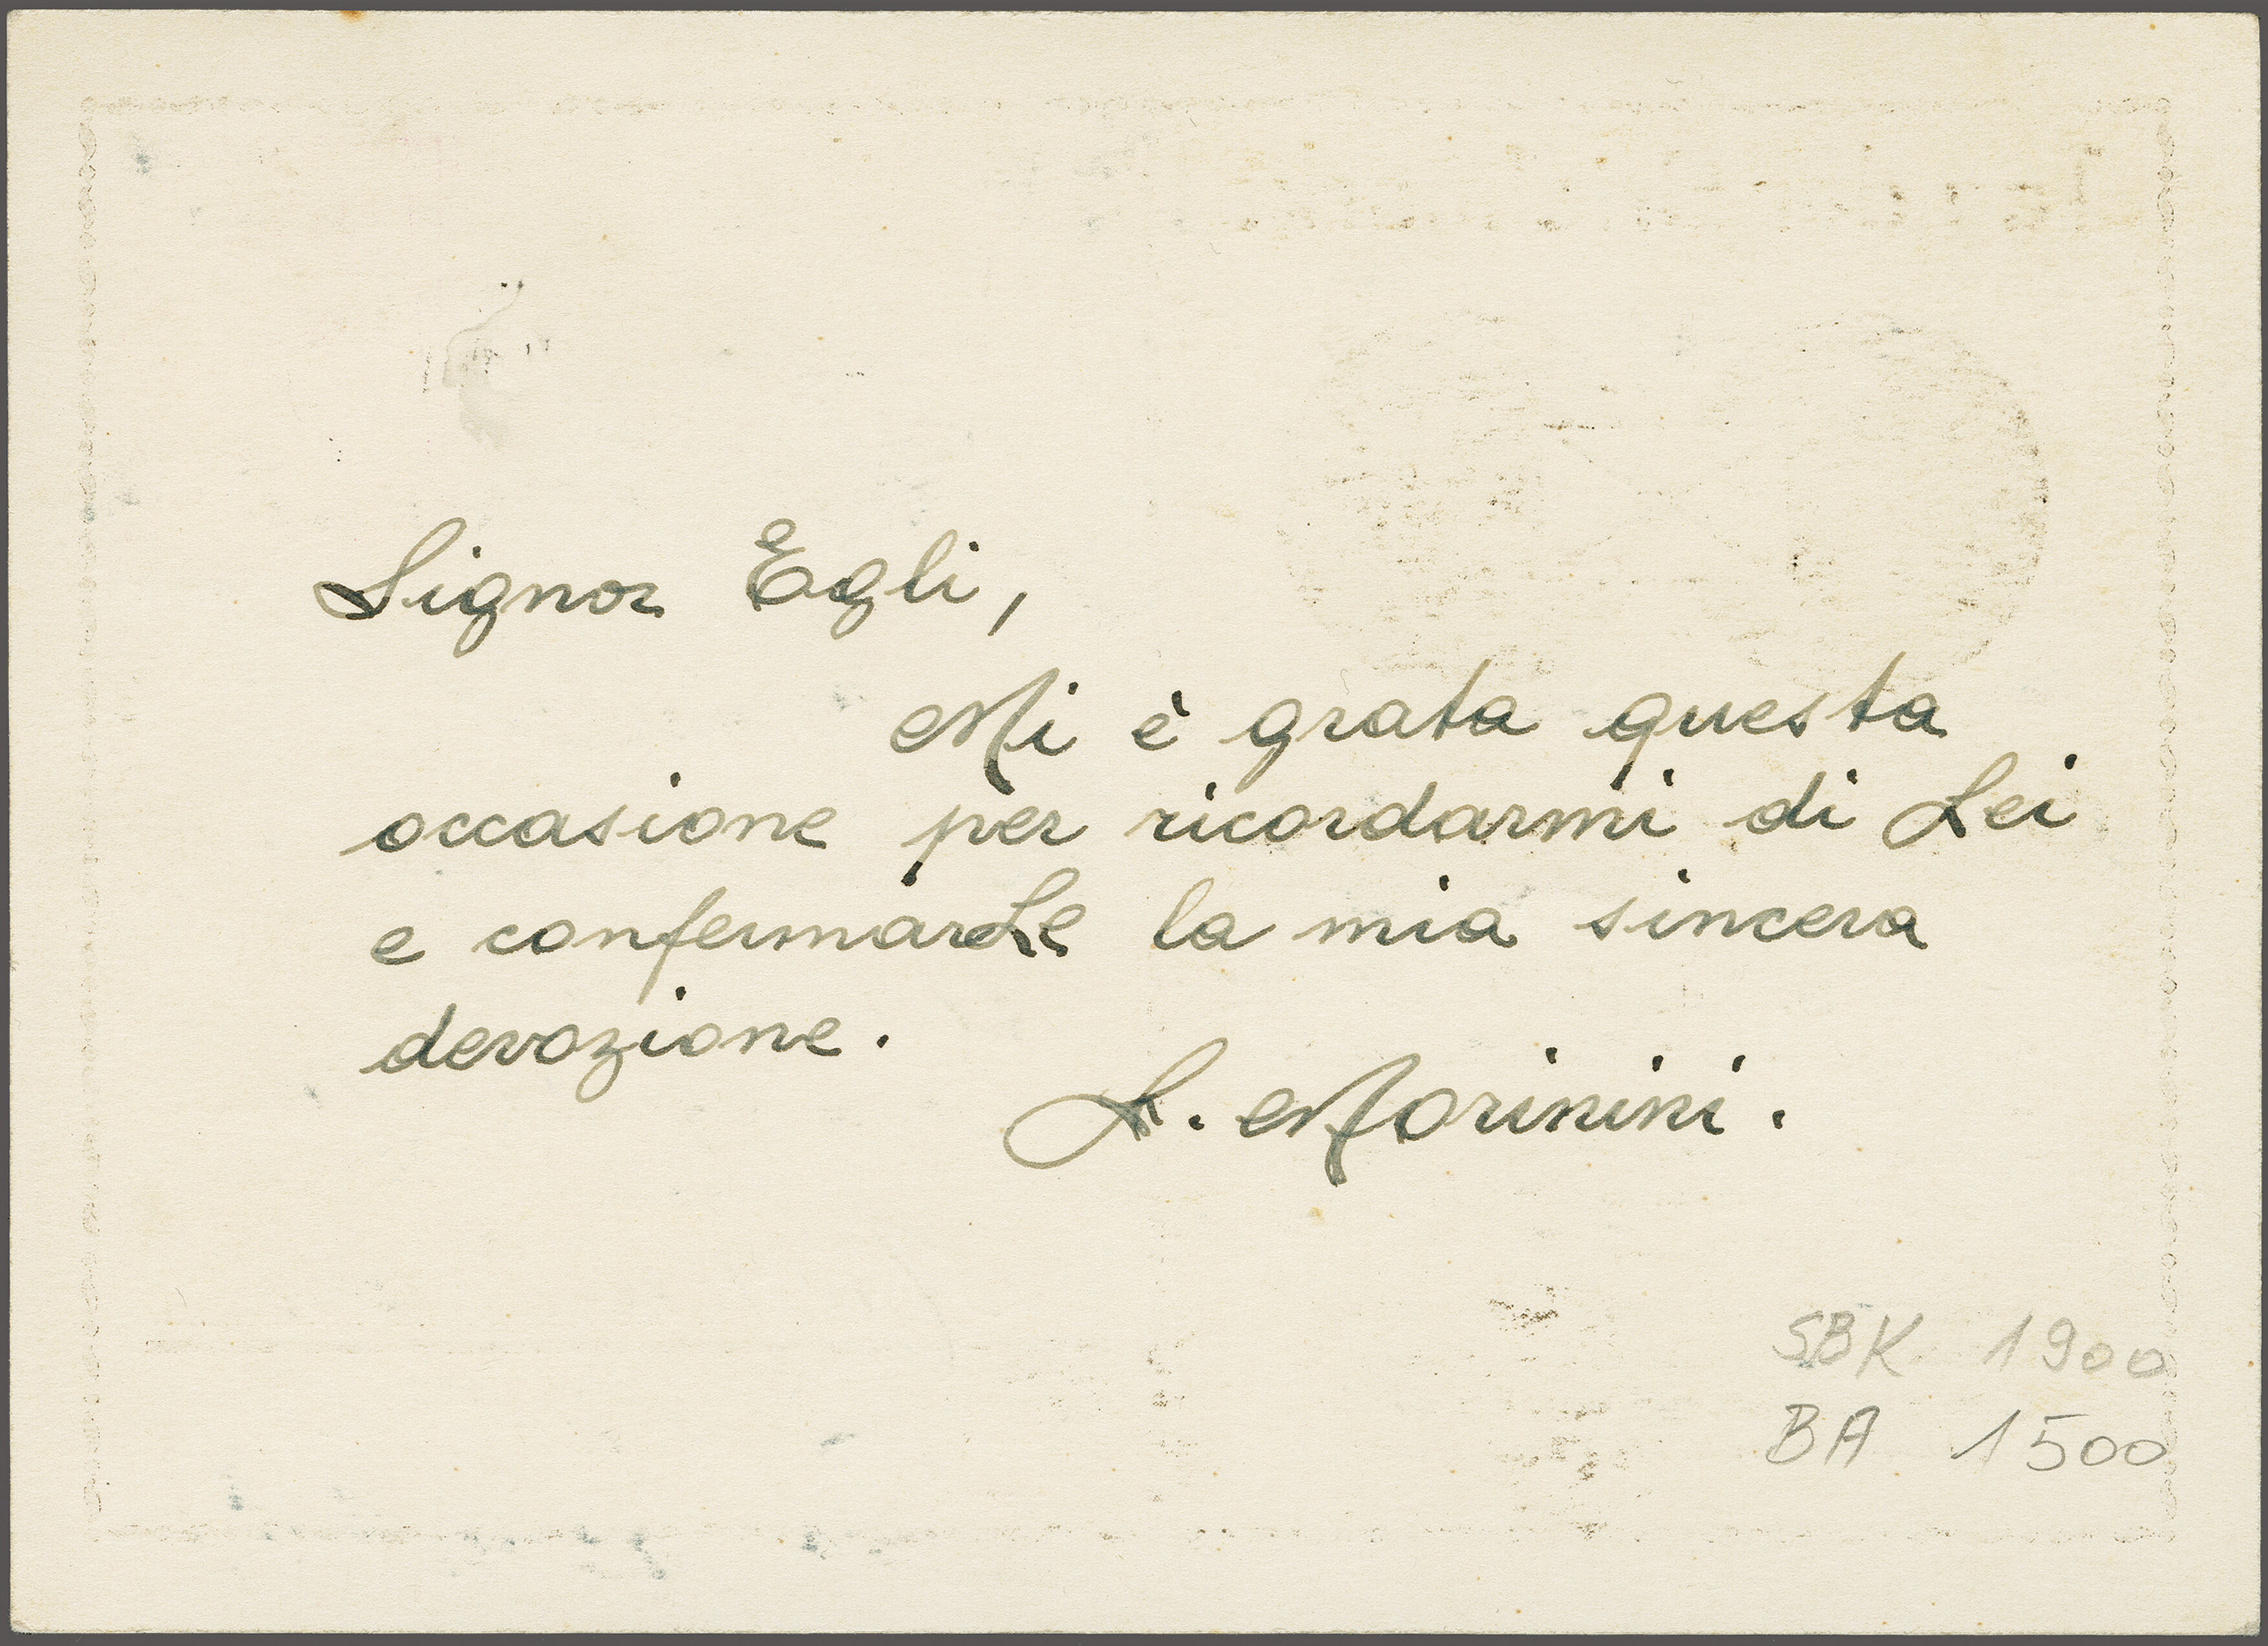 Signor Egli,
Mi è grata questa
occasione per ricordarmi di Lei
e confermarLe la mia sincera
devozione.
L. Morinini.
SBK 1900
BA 1500